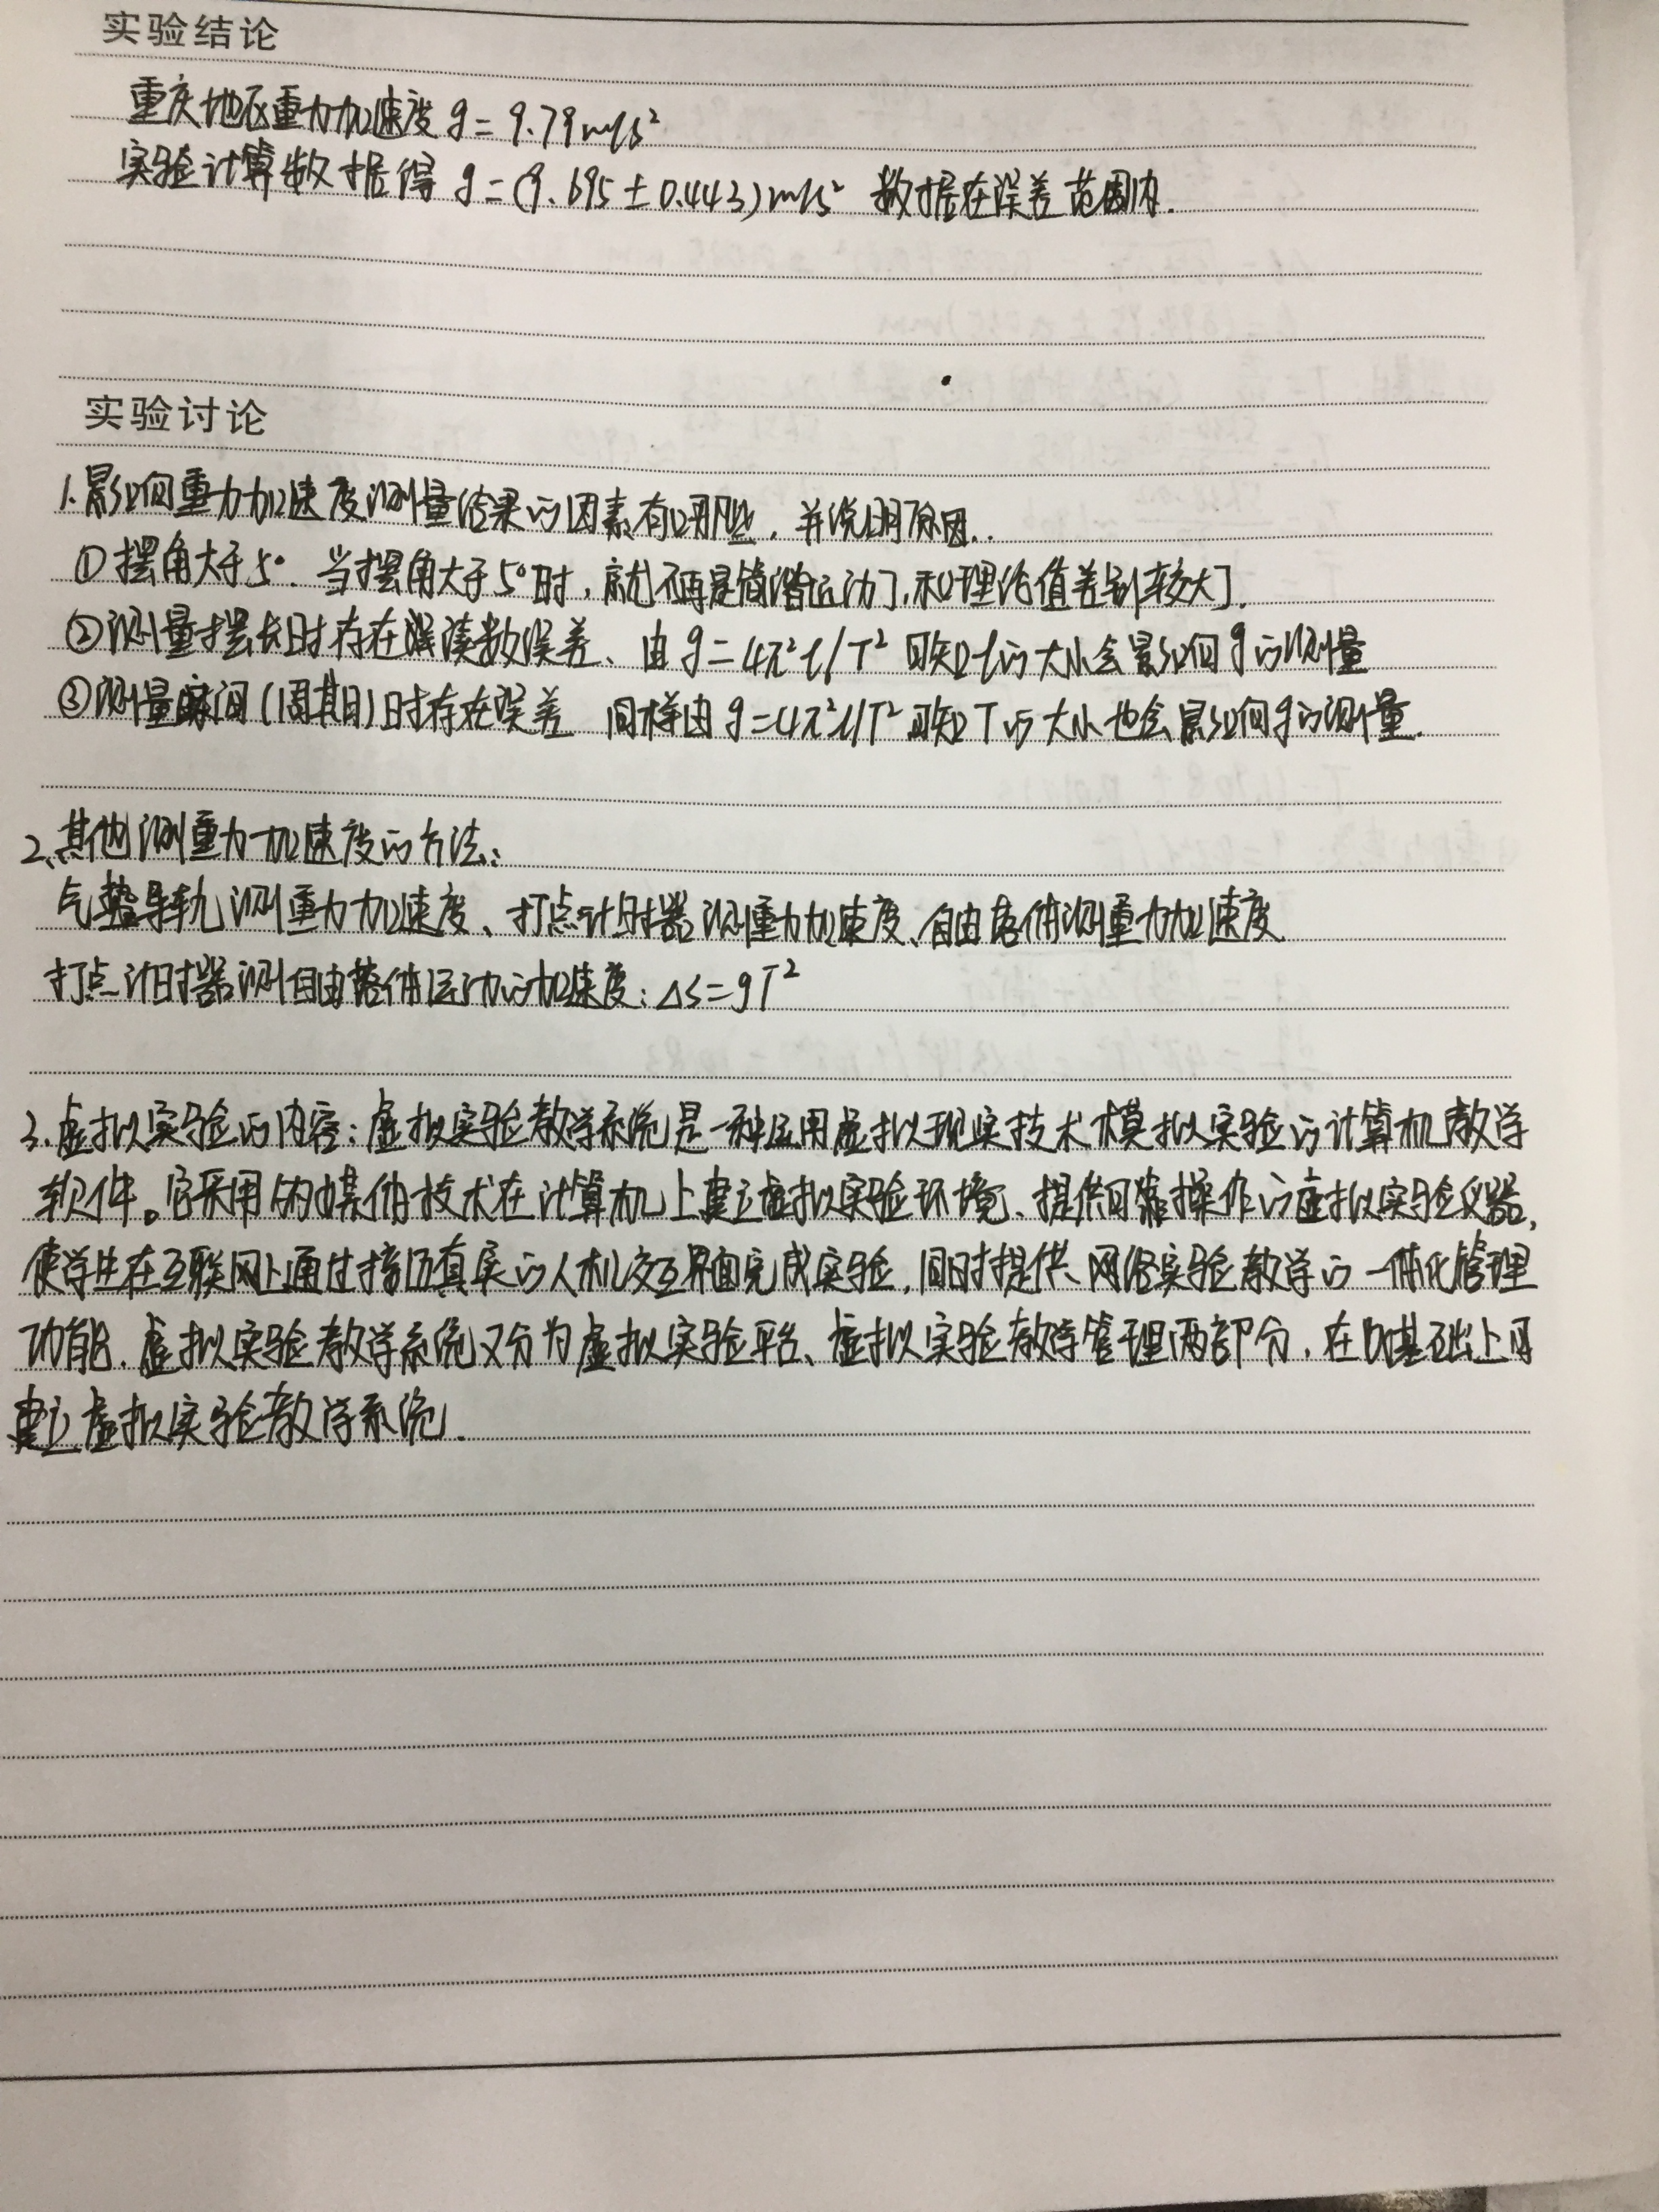 实验结论
重庆地区重力加速度 g=9.79m/s²
实验计算数据得 g=(9.695±0.443)m/s² 数据在误差范围内.
实验讨论
1.影响重力加速度测量结果的因素有哪些，并说明原因..
①摆角大于5°. 当摆角大于5°时，就不再是简谐运动了,和理论值差别较大了.
②测量摆长时存在读数误差、由 g=4π²l/T² 可知l的大小会影响g的测量
③测量时间(周期)时存在误差 同样由 g=4π²l/T² 可知T的大小也会影响g的测量.
2、其他测重力加速度的方法:
气垫导轨测重力加速度、打点计时器测重力加速度、自由落体测重力加速度
打点计时器测自由落体运动的加速度：△S=gT²
3.虚拟实验的内容：虚拟实验教学系统是一种运用虚拟现实技术模拟实验的计算机教学
软件。它采用多媒体技术在计算机上建立虚拟实验环境、提供可操作的虚拟实验仪器,
使学生在互联网上通过接近真实的人机交互界面完成实验,同时提供网络实验教学的一体化管理
功能. 虚拟实验教学系统又分为虚拟实验平台、虚拟实验教学管理两部分, 在此基础上可
建立虚拟实验教学系统.